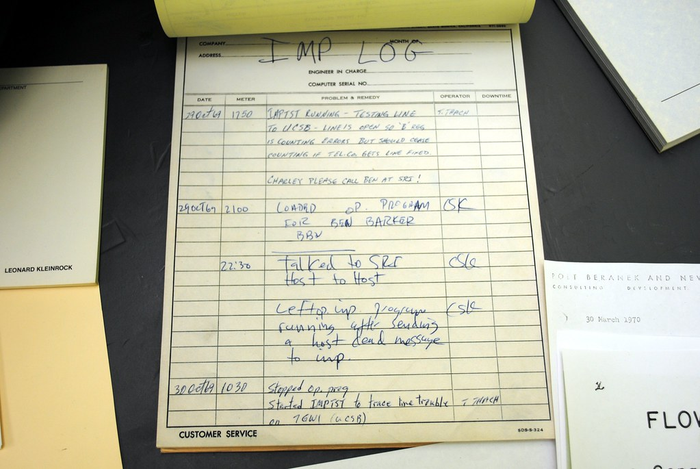 COMPANY MONTH OF
ADDRESS
IMP LOG
ENGINEER IN CHARGE
COMPUTER SERIAL NO.
DATE METER PROBLEM & REMEDY OPERATOR DOWNTIME
29OCT69 1730 IMPTST RUNNING - TESTING LINE T. THACH
TO UCSB - LINE IS OPEN SO 'B' REG
IS COUNTING ERRORS BUT SHOULD CEASE
COUNTING IF TELCO. GETS LINE FIXED.
CHARLEY PLEASE CALL BEN AT SRI!
29OCT69 2100 LOADED OP. PROGRAM CSK
FOR BEN BARKER
BBN
22:30 Talked to SRI CSK
Host to Host
Left op. imp. program CSK
running after sending
a host dead message
to imp.
30Oct69 1030 Stopped op. prog
Started IMPTST to trace line trouble T. THACH
on (UCSB)
CUSTOMER SERVICE 508-8-324
LEONARD KLEINROCK
BERANEK AND NEW
CONSULTING DEVELOPMENT
30 March 1970
FLOW